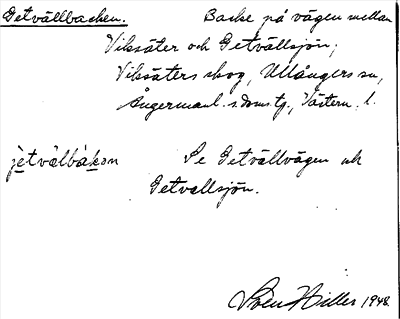 Getvällbacken. Backe på vägen mellan
Viksäter och Getvällsjön;
Viksäters skog, Ullångers sn,
Ångermanl. s. domstg., Västern. l.
jetvälbàkan Se Getvällvägen och
Getvallsjön.
Sven Hiller 1948.